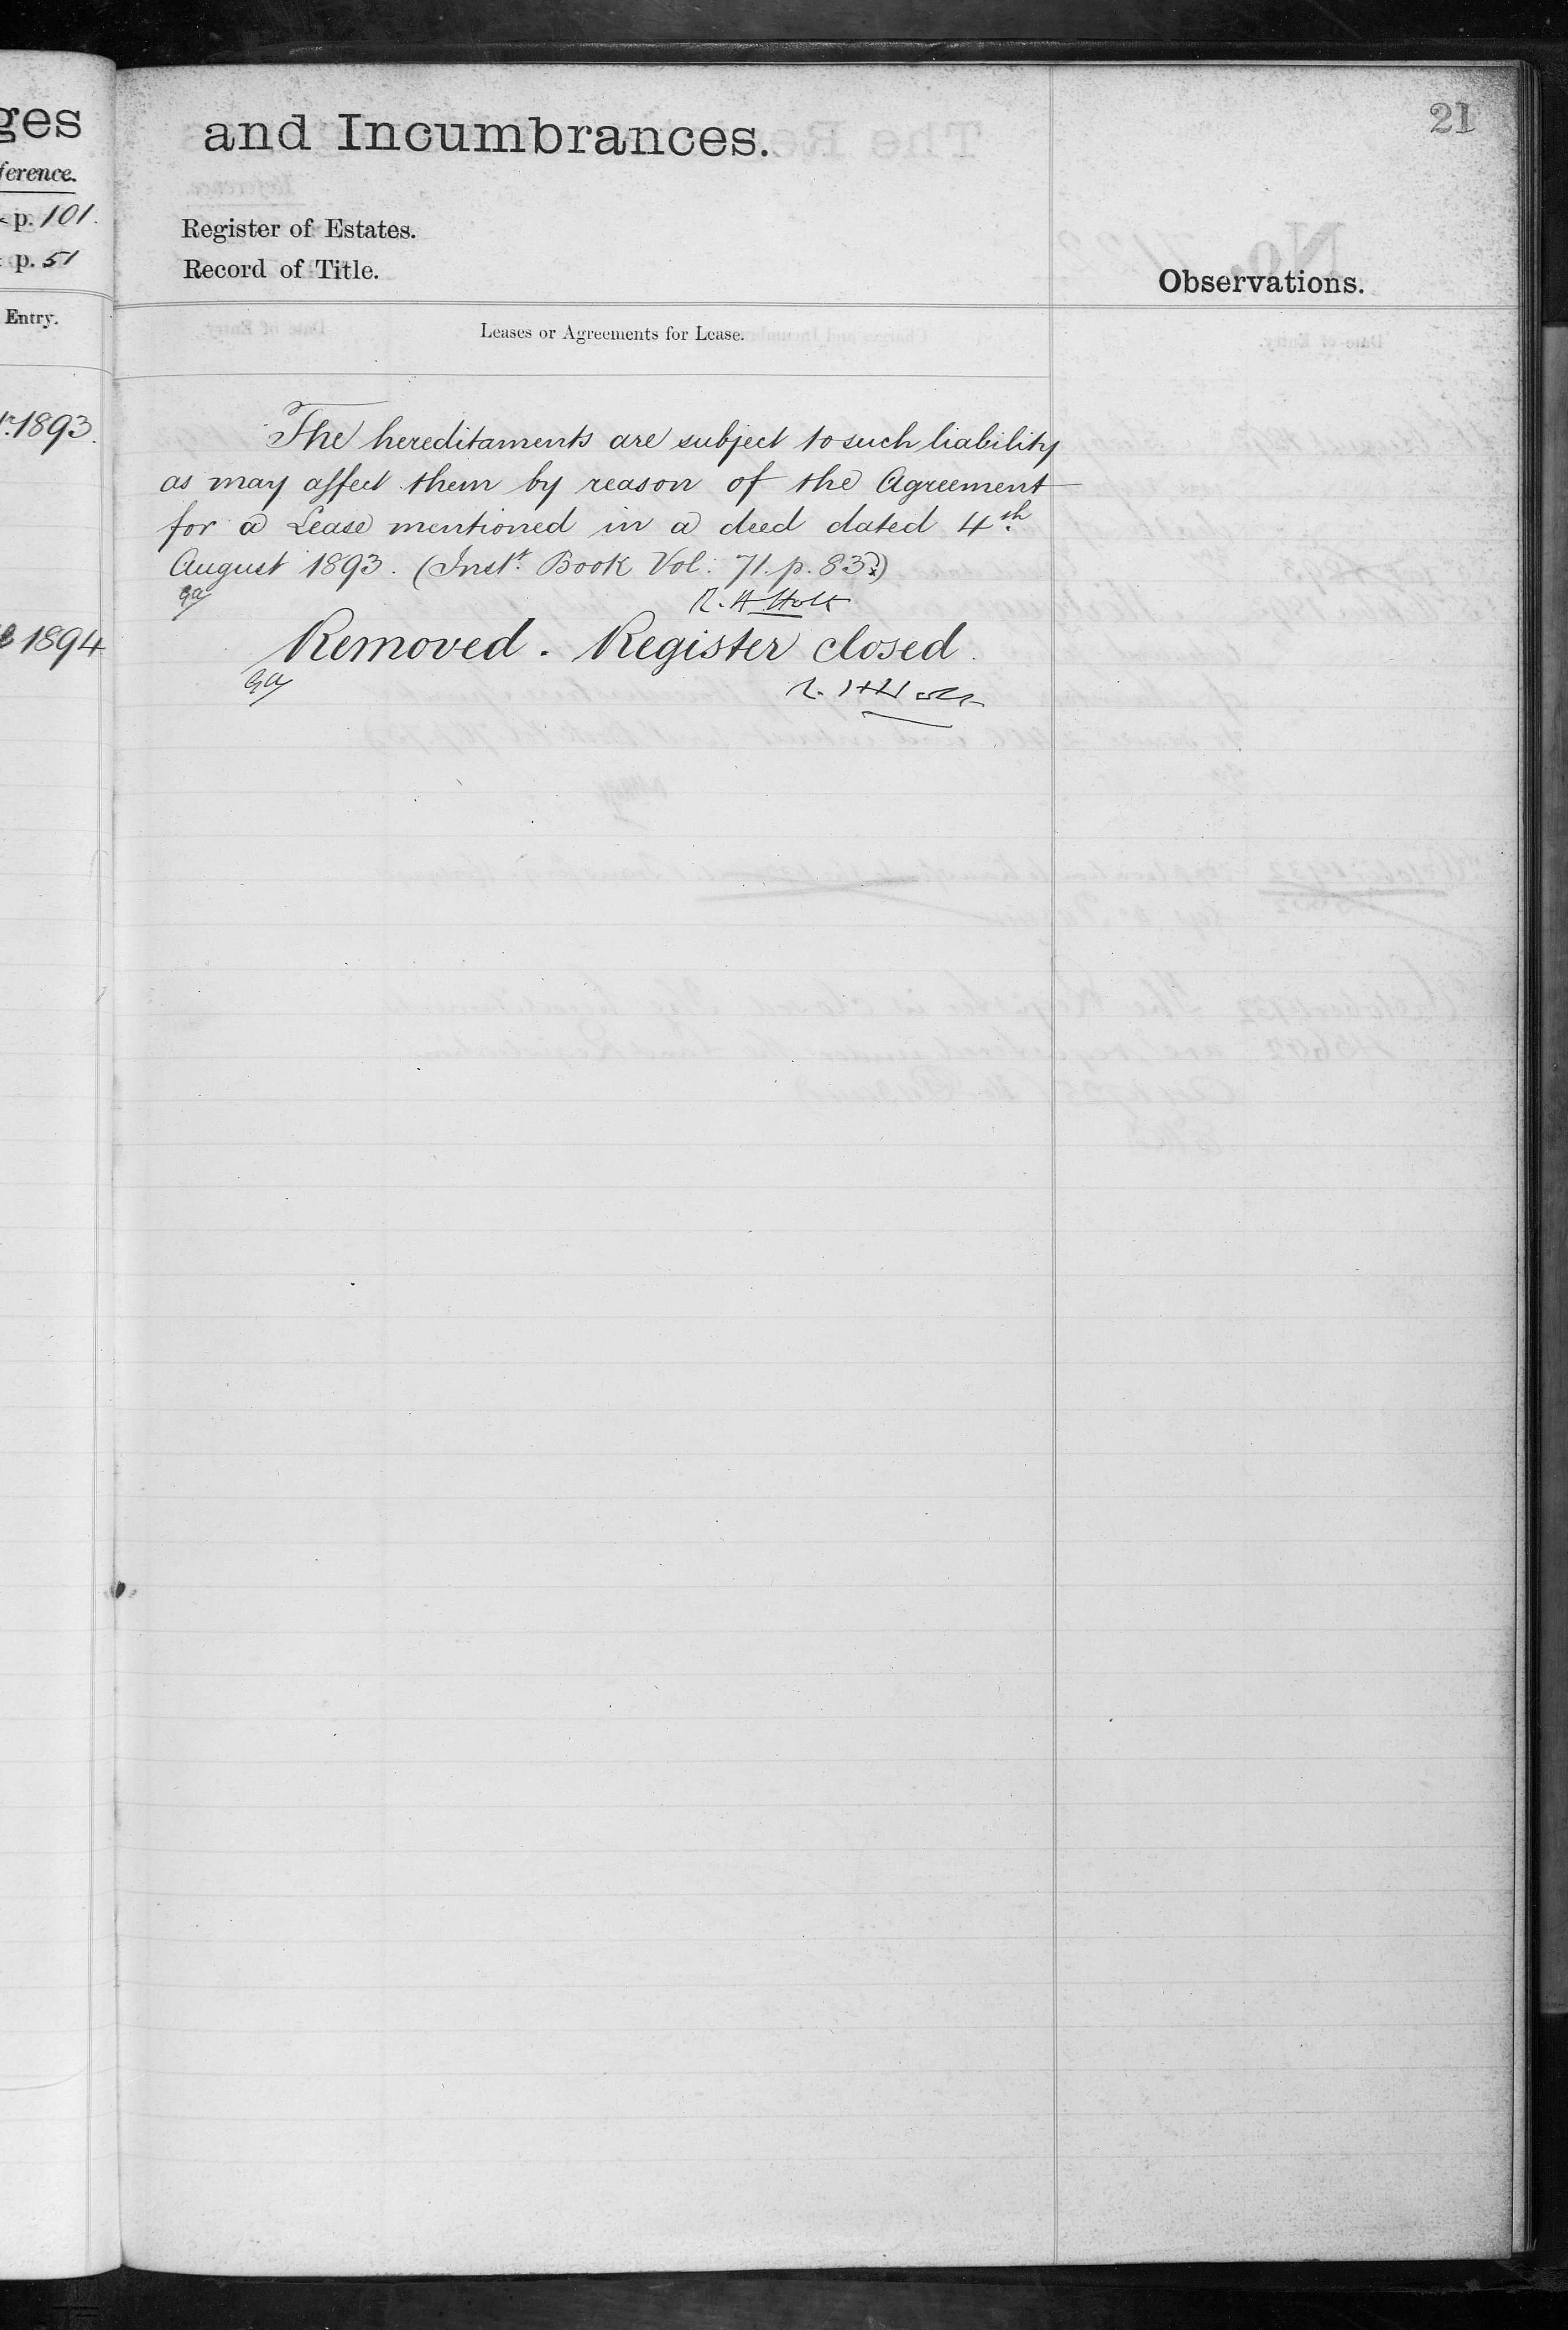 ges
ference.
p. 101.
p. 51
Entry.
1893.
1894
and Incumbrances.
21
Register of Estates.
Record of Title.
Observations.
Leases or Agreements for Lease.
The hereditaments are subject to such liability
as may affect them by reason of the Agreement
for a Lease mentioned in a deed dated 4th
August 1893. (Inst. Book Vol. 71. p. 83.)
R. H. Holt
Removed. Register closed.
R. H. Holt